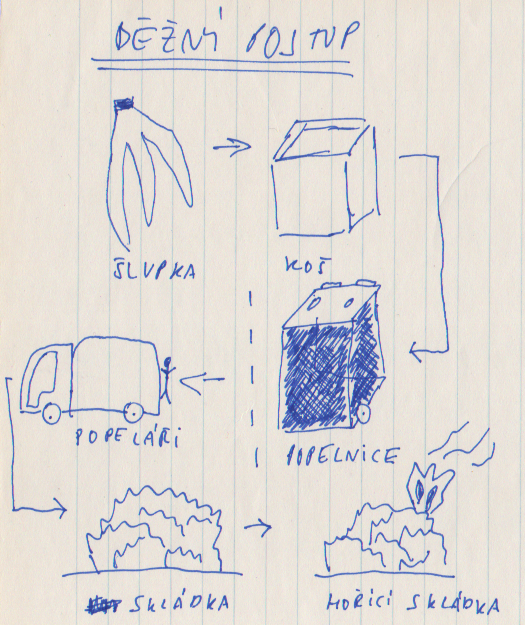 BĚŽNÍ POSTUP
ŠLUPKA
KOŠ
POPELÁŘI
POPELNICE
SKLÁDKA
HOŘÍCÍ SKLÁDKA